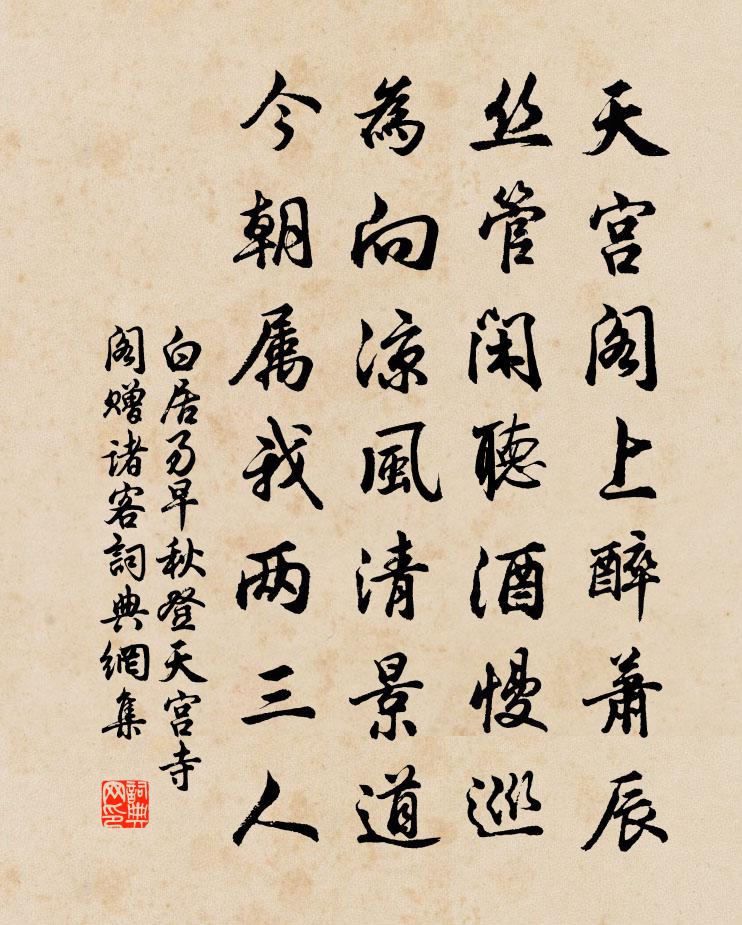 天宫阁上醉萧辰
丝管闲聽酒慢巡
為向涼風清景道
今朝属我两三人
白居易早秋登天宫寺
阁赠诸客詞典網集
詞典网印